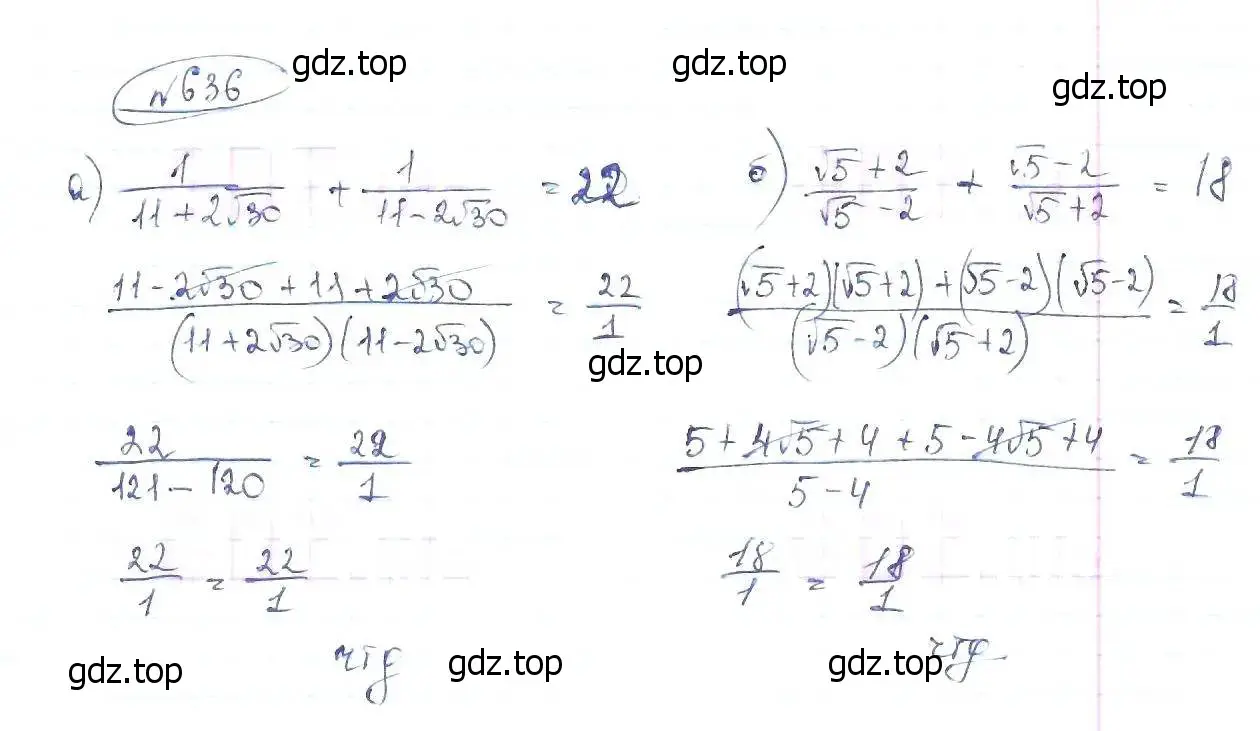 gdz.top gdz.top gdz.top
№636
а) 1/(11+2√30) + 1/(11-2√30) = 22
(11-2√30+11+2√30)/((11+2√30)(11-2√30)) = 22/1
22/(121-120) = 22/1
22/1 = 22/1
чтд
б) (√5+2)/(√5-2) + (√5-2)/(√5+2) = 18
((√5+2)(√5+2)+(√5-2)(√5-2))/((√5-2)(√5+2)) = 18/1
(5+4√5+4+5-4√5+4)/(5-4) = 18/1
18/1 = 18/1
чтд
gdz.top gdz.top
gdz.top gdz.top gdz.top